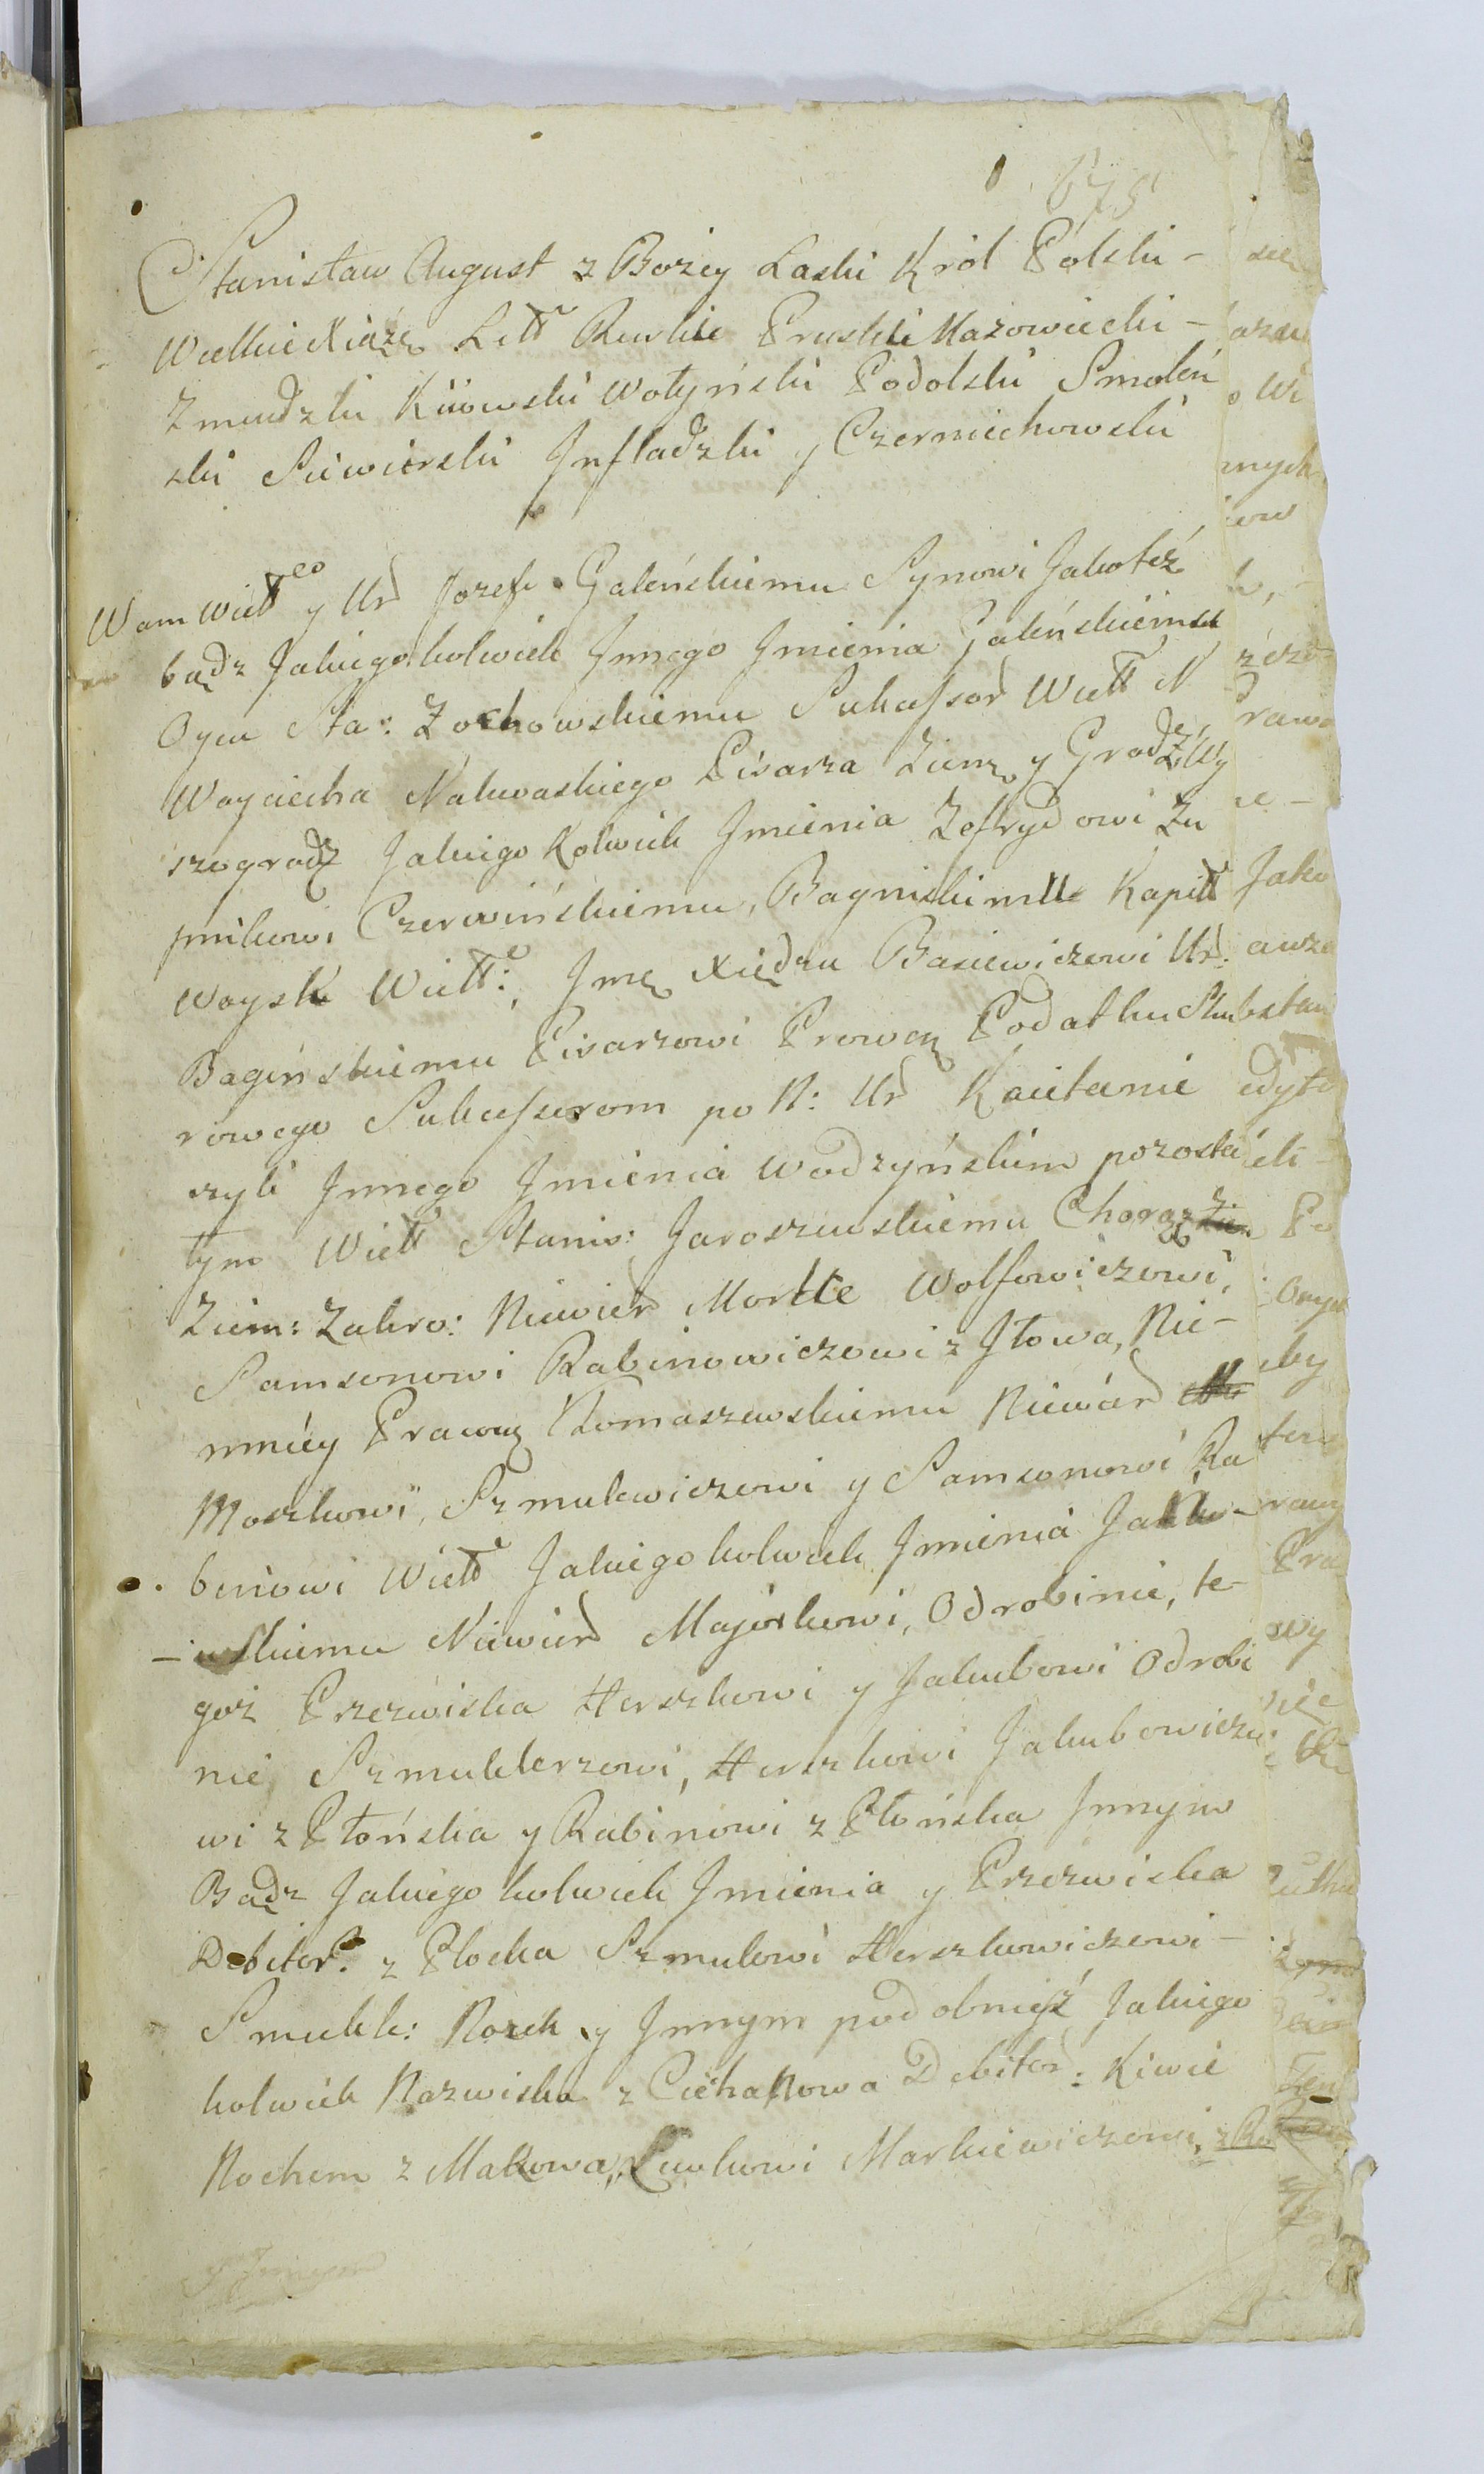 675
Stanisław August z Bożey Łaski Król Polski -
Wielkie Xiąże Litt Ruskie Pruskie Mazowiecki -
Zmudzki Kiiowski Wołyński Podolski Smoleń
ski Siewierski Infladzki y Czerniechowski
Wam Wiell y Ur Jozef Galeńskiemu Synowi Jakoteż
bądz Jakiegokolwiek Innego Imienia Galeńskiemu
Oycu Sta: Zochowskiemu Sukcessor Wiell N
Woyciecha Nakwaskiego Pisarza Ziemz y Grodz Wy
szogrodz Jakiego Kolwiek Imienia Zefrydowi Zu
pnikowi Czerwińskiemu, Bagniskimu Kapitt
Woysk Wiell: Jmę Xiędzu Basiewiczowi Ur:
Bagińskiemu Pisarzowi Prowen Podatku Sku
rowego Sukcessorom po N: Ur Kaietanie
czyli Innego Imienia Wodzyńskim pozosta
łym Wiell Stanis: Jaroszewskiemu Chorąz
Ziem: Zakro: Niewier Morkie Wolfowiczowi,
Samsonowi Rabinowiczowi z Iłowa, Nie-
mniey Prawuą Tomaszewskiemu Niewier
Moszkowi, Szmulewiczowi y Samsonowi Ra
binowi Wiell Jakiegokolwiek Imienia Jakko-
- wskiemu Niewier Majorkowi, Odrobinie, te-
goż Przezwiska Herszkowi y Jakubowi Odrobi
nie, Szmuklerzowi, Herszkowi Jakubowiczo
wi z Płońska y Rabinowi z Płońska Innym
Bądz Jakiego kolwiek Imienia y Przezwiska
Debitor: z Płocka Szmulowi Herszkowiczowi -
Smukle: Rozek y Innym podobnież Jakiego
kolwiek Nazwiska z Ciechanowa Debitor: Kiwie
Nochem z Makowa, Lewkowi Markiewiczowi,
y Innym